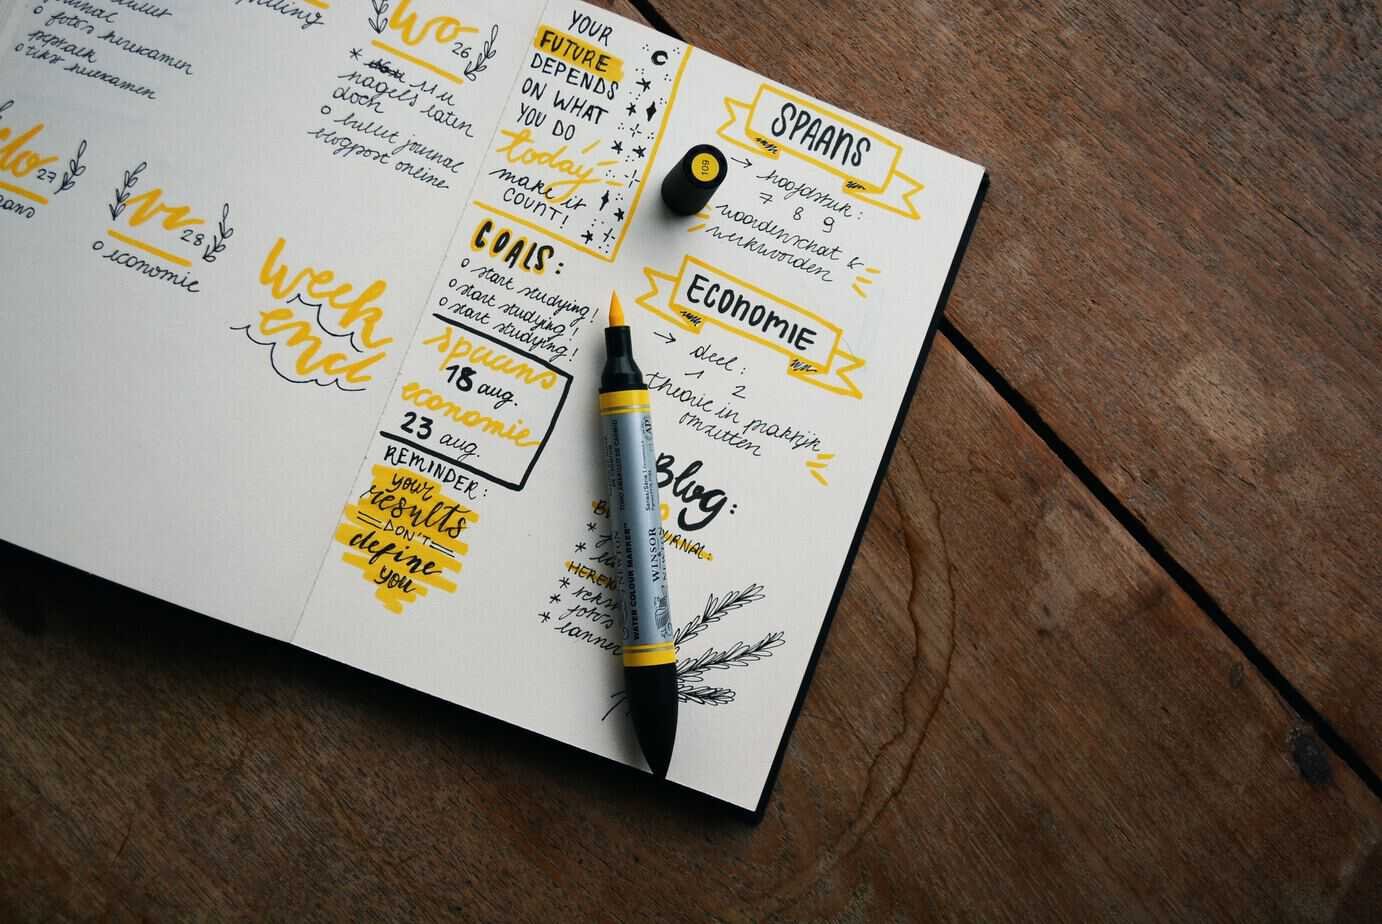 bullet
journal
o foto's herexamen
peptalk
o tekst herexamen
wo 26
* u
nagels laten
doen
o bullet journal
blogpost online
do 27
vr 28
o economie
week
end
YOUR
FUTURE
DEPENDS
ON WHAT
YOU DO
today
make it
COUNT!
GOALS:
o start studying!
o start studying!
o start studying!
spaans
18 aug.
economie
23 aug.
REMINDER:
your
results
DON'T
define
you
SPAANS
→ hoofdstuk:
7 8 9
woordenschat &
werkwoorden
ECONOMIE
→ deel:
1 2
theorie in praktijk
omzetten
Blog:
JOURNAL:
*
*
HEREX
* tekst
* foto's
* banner
109
WATER COLOUR MARKER™
WINSOR
& NEWTON